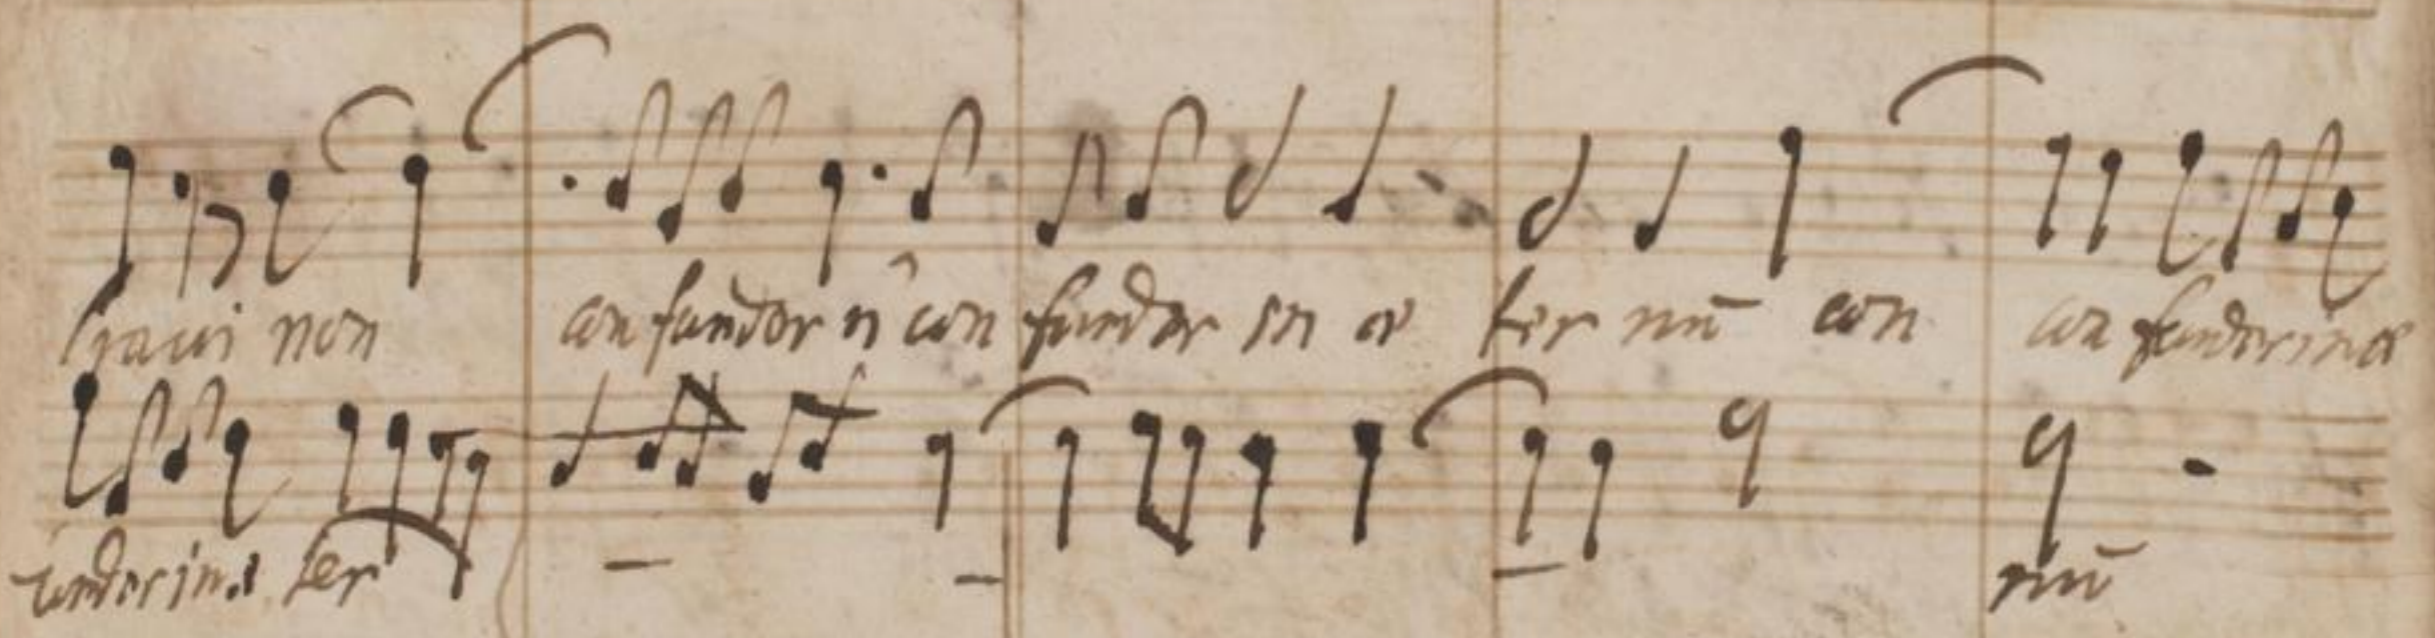 speravi non con fundor n̄ con fundar in æ ter nū con con fundar in æ
fundor in æ ter nū